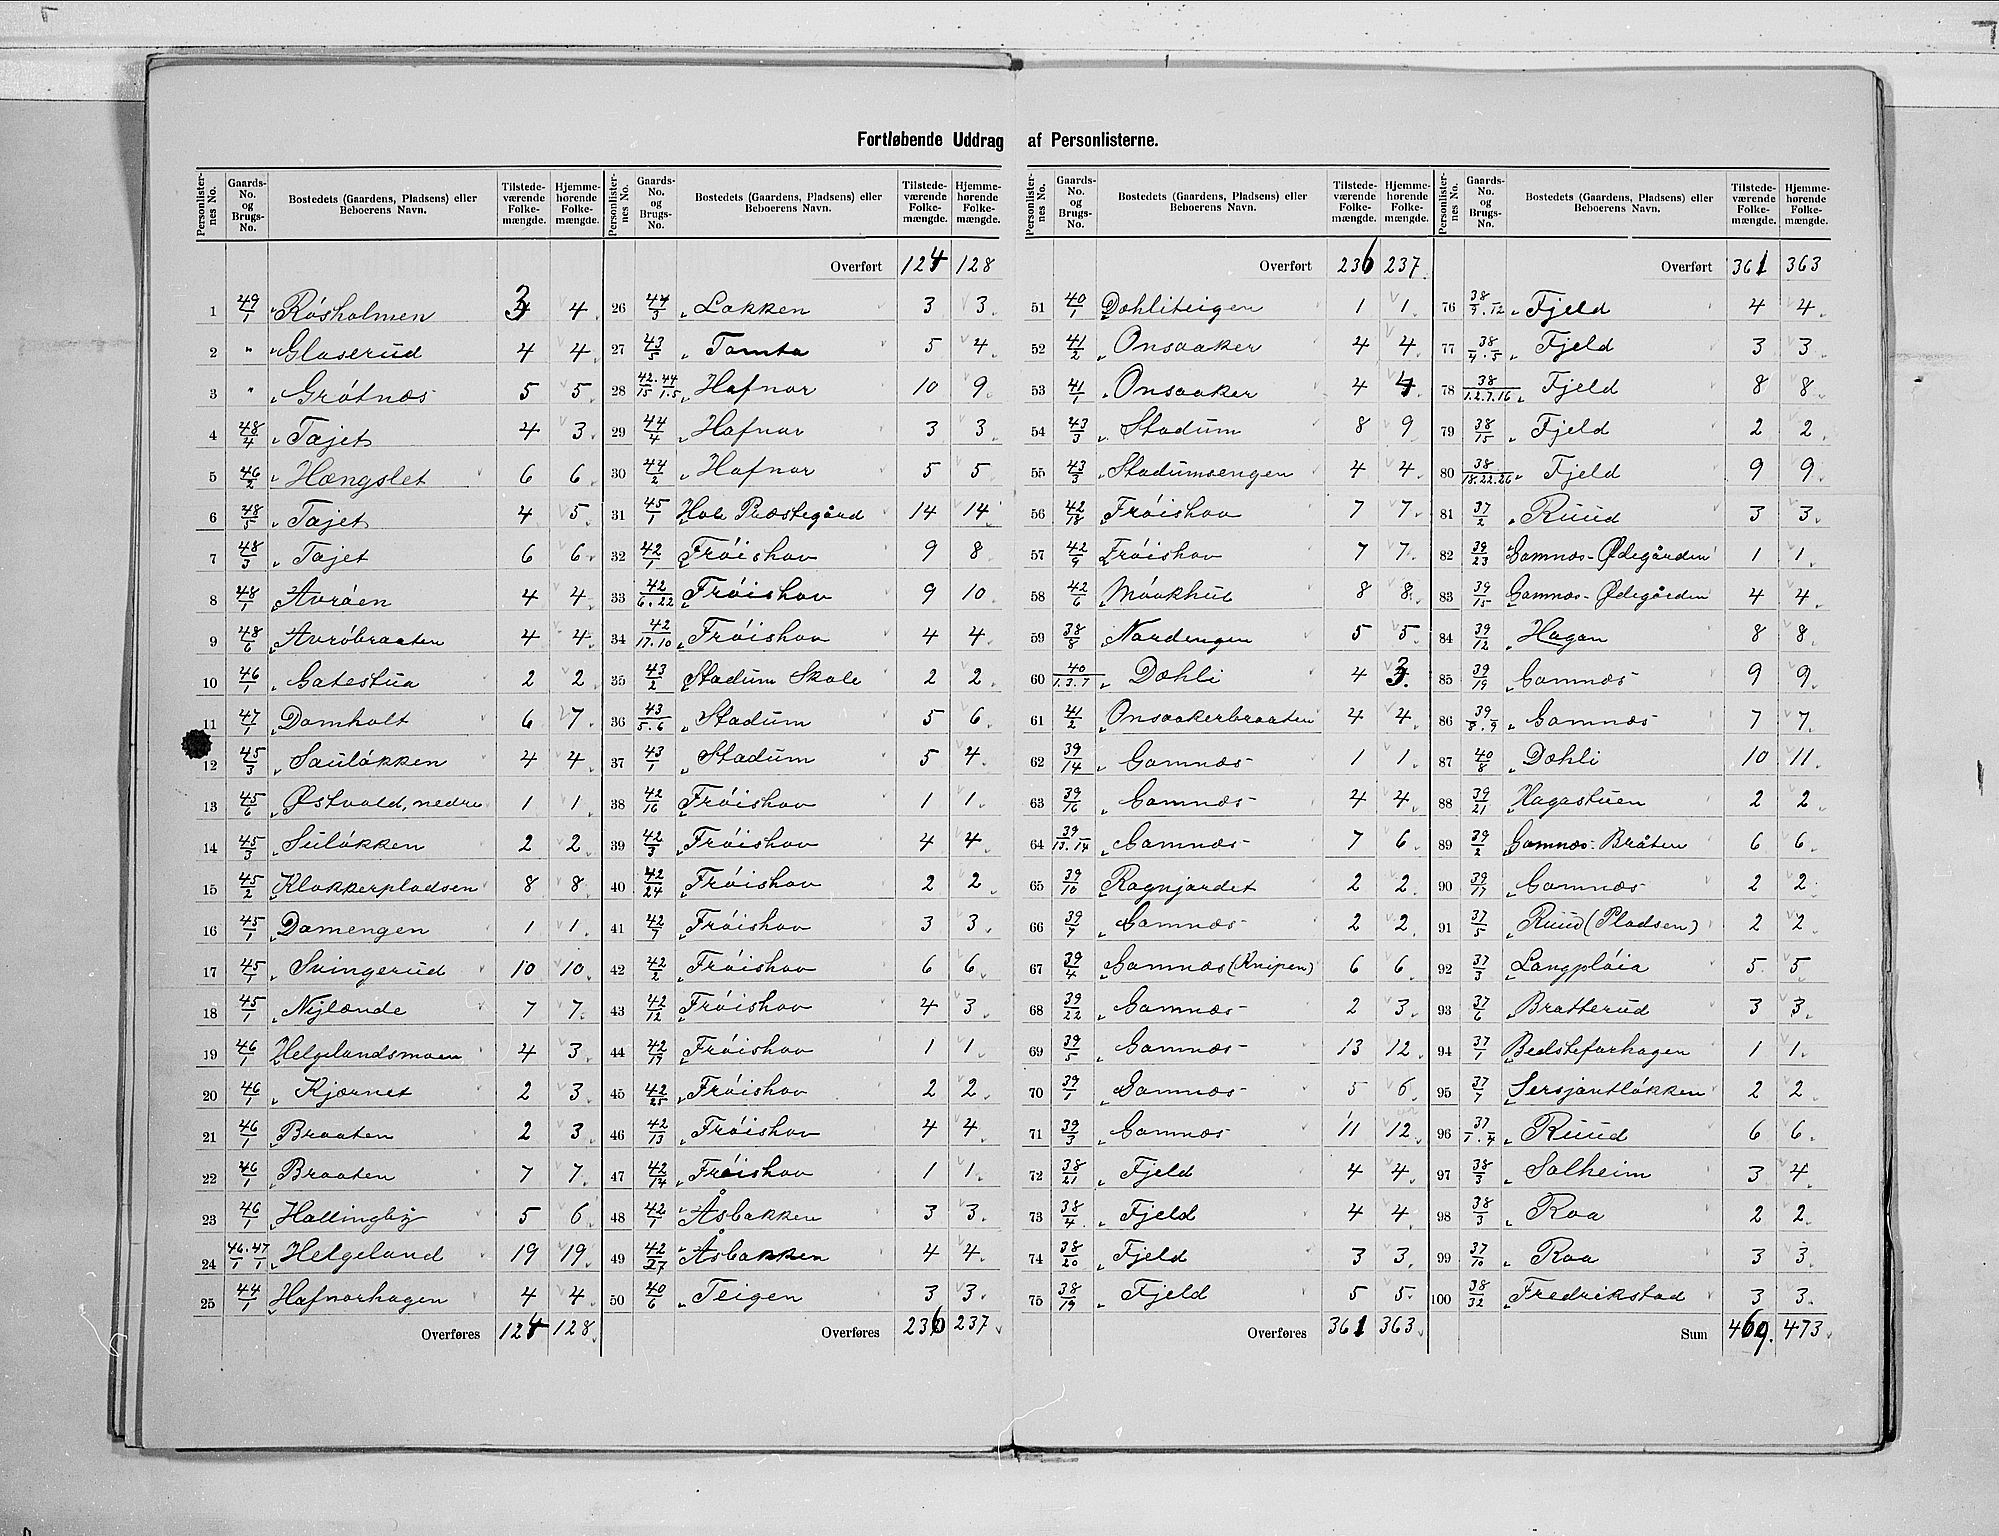 Fortløbende Uddrag af Personlisterne.
Personlisternes No. Gaards-No. og Brugs-No. Bostedets (Gaardens, Pladsens) eller Beboerens Navn. Tilstedeværende Folkemængde. Hjemmehørende Folkemængde.
1 49/1 „ Røsholmen 3 4
2 " „ Glaserud 4 4
3 " „ Grøtnæs 5 5
4 48/4 „ Tajet 4 3
5 46/2 „ Hængslet 6 6
6 48/5 „ Tajet 4 5
7 48/3 „ Tajet 6 6
8 48/1 „ Avrøen 4 4
9 48/6 „ Avrøbraaten 4 4
10 46/1 „ Gatestua 2 2
11 47/1 „ Domholt 6 7
12 45/3 „ Sauløkken 4 4
13 45/6 „ Østvold, nedre 1 1
14 45/3 „ Suløkken 2 2
15 45/2 Klokkerpladsen 8 8
16 45/1 „ Damengen 1 1
17 45/1 „ Svingerud 10 10
18 45/1 „ Nylænde 7 7
19 46/1 „ Helgelandsmoen 4 3
20 46/1 „ Kjærnet 2 3
21 46/1 „ Braaten 2 3
22 46/1 „ Braaten 7 7
23 46/1 „ Hallingby 5 6
24 46/1. 47/1 „ Helgeland 19 19
25 44/1 „ Hafnorhagen 4 4
Overføres 124 128
Personlisternes No. Gaards-No. og Brugs-No. Bostedets (Gaardens, Pladsens) eller Beboerens Navn. Tilstedeværende Folkemængde. Hjemmehørende Folkemængde.
Overført 124 128
26 44/3 „ Løkken 3 3
27 43/5 „ Tomta 5 4
28 42/15. 44/1.5 „ Hafnor 10 9
29 44/4 „ Hafnor 3 3
30 44/2 „ Hafnor 5 5
31 45/1 „ Hole Præstegård 14 14
32 42/1 „ Frøishov 9 8
33 42/6.22 „ Frøishov 9 10
34 42/17.10 „ Frøishov 4 4
35 43/2 „ Stadum Skole 2 2
36 43/5.6 „ Stadum 5 6
37 43/1 „ Stadum 5 4
38 42/16 „ Frøishov 1 1
39 42/3 „ Frøishov 4 4
40 42/24 „ Frøishov 2 2
41 42/7 „ Frøishov 3 3
42 42/2 „ Frøishov 6 6
43 42/12 „ Frøishov 4 3
44 42/19 „ Frøishov 1 1
45 42/25 „ Frøishov 2 2
46 42/13 „ Frøishov 4 4
47 42/14 „ Frøishov 1 1
48 42/1 „ Åsbakken 3 3
49 42/27 „ Åsbakken 4 4
50 40/6 „ Teigen 3 3
Overføres 236 237
Personlisternes No. Gaards-No. og Brugs-No. Bostedets (Gaardens, Pladsens) eller Beboerens Navn. Tilstedeværende Folkemængde. Hjemmehørende Folkemængde.
Overført 236 237
51 40/1 „ Dæhliteigen 1 1
52 41/2 „ Onsaaker 4 4
53 41/1 „ Onsaaker 4 4
54 43/3 „ Stadum 8 9
55 43/3 „ Stadumsengen 4 4
56 42/18 „ Frøishov 7 7
57 42/9 „ Frøishov 7 7
58 42/6 „ 8 8
59 38/8 „ Nordengen 5 5
60 40/1.3.7 „ Dæhli 4 3
61 41/2 „ Onsaakerbraaten 4 4
62 39/14 „ Gomnæs 1 1
63 39/16 „ Gomnæs 4 4
64 39/13.14 „ Gomnæs 7 6
65 39/10 „ Rognjordet 2 2
66 39/7 „ Gomnæs 2 2
67 39/4 „ Gomnæs (Knipen) 6 6
68 39/22 „ Gomnæs 2 3
69 39/5 „ Gomnæs 13 12
70 39/1 „ Gomnæs 5 6
71 39/3 „ Gomnæs 11 12
72 38/21 „ Fjeld 4 4
73 38/4. „ Fjeld 4 4
74 38/20 „ Fjeld 3 3
75 38/19 „ Fjeld 5 5
Overføres 361 363
Personlisternes No. Gaards-No. og Brugs-No. Bostedets (Gaardens, Pladsens) eller Beboerens Navn. Tilstedeværende Folkemængde. Hjemmehørende Folkemængde.
Overført 361 363
76 38/9.12 „ Fjeld 4 4
77 38/4.5 „ Fjeld 3 3
78 38/1.2.7.16 „ Fjeld 8 8
79 38/15 „ Fjeld 2 2
80 38/18.22.26 „ Fjeld 9 9
81 37/2 „ Ruud 3 3
82 39/23 „ Gomnæs-Ødegården 1 1
83 39/15 „ Gomnæs-Ødegården 4 4
84 39/12 „ Hagan 8 8
85 39/19 „ Gomnæs 9 9
86 39/8.9 „ Gomnæs 7 7
87 40/8 „ Dæhli 10 11
88 39/21 „ Hagastuen 2 2
89 39/2 „ Gomnæs-Bråten 6 6
90 39/17 „ Gomnæs 2 2
91 37/5 „ Ruud (Pladsen) 2 2
92 37/3 „ Langpløia 5 5
93 37/6 „ Bratterud 3 3
94 37/1 „ Bedstefarhagen 1 1
95 37/7 „ Sersjantløkken 2 2
96 37/1.4 „ Ruud 6 6
97 38/3 „ Solheim 3 4
98 38/3 „ Roa 2 2
99 37/10 „ Roa 3 3
100 38/32 „ Fredrikstad 3 3
Sum 469. 473